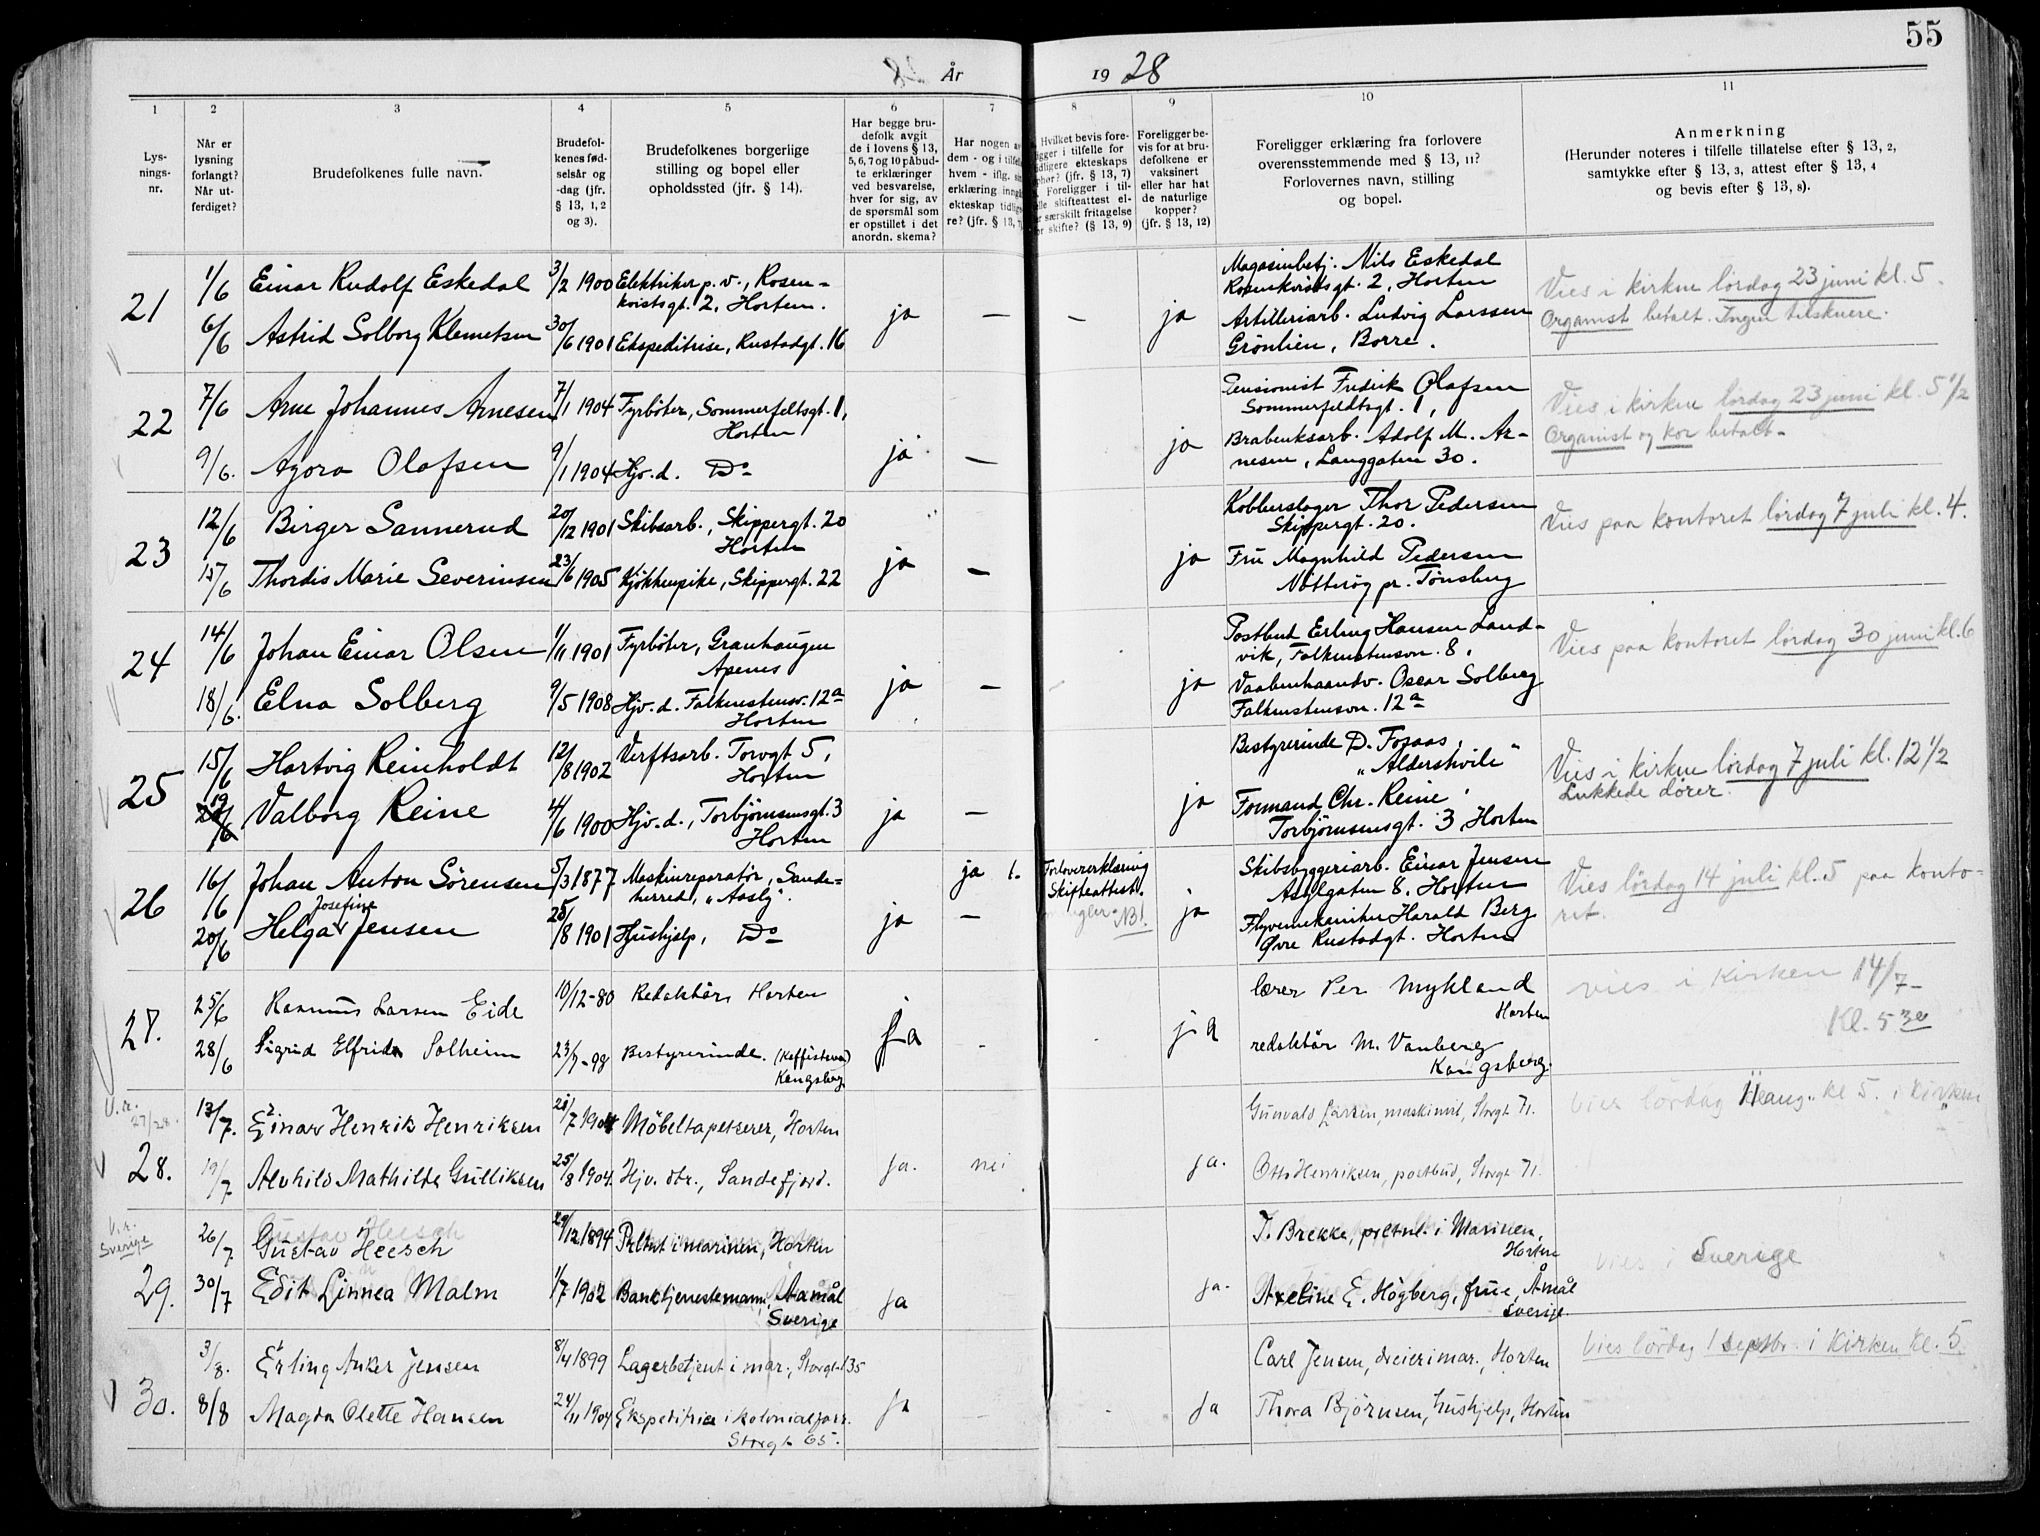 55
År 1928
1 2 3 4 5 6 7 8 9 10 11
Lys-
nings-
nr.
Når er
lysning
forlangt?
Når ut-
ferdiget?
Brudefolkenes fulle navn.
Brudefol-
kenes fød-
selsår og
-dag (jfr.
§ 13, 1, 2
og 3).
Brudefolkenes borgerlige
stilling og bopel eller
opholdssted (jfr. § 14).
Har begge bru-
defolk avgit
de i lovens § 13,
5, 6, 7 og 10 påbud-
te erklæringer
ved besvarelse,
hver for sig, av
de spørsmål som
er opstillet i det
anordn. skema?
Har nogen av
dem - og i tilfelle
hvem - iflg. sin
erklæring inngått
ekteskap tidlige-
re? (jfr. § 13, 7)
Hvilket bevis fore-
ligger i tilfelle for
tidligere ekteskaps
ophør? (jfr. § 13, 7)
Foreligger i til-
felle skifteattest el-
ler særskilt fritagelse
for skifte? (§ 13, 9)
Foreligger be-
vis for at bru-
defolkene er
vaksinert
eller har hat
de naturlige
kopper?
(jfr. § 13, 12)
Foreligger erklæring fra forlovere
overensstemmende med § 13, 11?
Forlovernes navn, stilling
og bopel.
Anmerkning
(Herunder noteres i tilfelle tillatelse efter § 13, 2,
samtykke efter § 13, 3, attest efter § 13, 4
og bevis efter § 13, 8).
21
1/6 Einar Rudolf Eskedal 3/2 1900 Elektriker p.v., Rosen-
kvistsgt. 2, Horten.
6/6 Astrid Solborg Klemetsen 30/6 1901 Ekspeditrise, Rustadgt. 16
ja — — ja
Magasinbetj. Nils Eskedal
Rosenkvistsgt. 2, Horten
Artilleriarb. Ludvig Larssen
Grönlien, Borre.
Vies i kirken lördag 23 juni kl. 5.
Organist betalt. Ingen tilskuere.
22
7/6 Arne Johannes Arnesen 7/1 1904 Fyrböter, Sommerfeltsgt. 1,
Horten
9/6. Agora Olafsen 9/1 1904 Hjv. d. Do
ja — ja
Pensionist Fredrik Olafsen
Sommerfeldtsgt. 1,
Brabenksarb. Adolf M. Ar-
nesen, Langgaten 30.
Vies i kirken lördag 23 juni kl. 5 1/2
Organist og kor betalt-
23
12/6 Birger Sannerud 20/12 1901 Skibsarb., Skippergt. 20
Horten
15/6 Thordis Marie Severinsen 23/6 1905 Kjökkenpike, Skippergt. 22
ja — ja
Kobberslager Thor Pedersen
Skippergt. 20.
Fru Magnhild Pedersen
Nötteröy pr. Tönsberg
Vies paa kontoret lördag 7 juli kl. 4.
24
14/6 Johan Einar Olsen 1/11 1901 Fyrböter, Granhaugen
Apenes
18/6. Elna Solberg 9/5 1908 Hjv. d. Falkenstensv. 12a
Horten
ja — ja
Postbud Erling Hansen Land-
vik, Falkenstensvn. 8,
Vaabenhaandv. Oscar Solberg
Falkenstensvn. 12a
Vies paa kontoret lördag 30 juni kl. 6
25
15/6 Hartvig Reinholdt 12/8 1902 Verftsarb. Torvgt 5,
Horten
19/6 Valborg Reine 4/6 1900 Hjv. d., Torbjörnsensgt. 3
Horten
ja — ja
Bestyrerinde D. Fosaas,
"Aldershvile"
Formand Chr. Reine,
Torbjörnsensgt. 3, Horten
Vies i kirken lördag 7 juli kl. 12 1/2
Lukkede dörer.
26
16/6 Johan Anton Sörensen 5/3 1877 Maskinreparatör, Sande-
herred, "Aasly".
Josefine
20/6 Helga Jensen 25/8 1901 Hushjelp, Do
ja ja 1. —
Forlovererklæring
Skifteattest.
mangler NB!
ja
Skibsbyggeriarb. Einar Jensen
Asylgaten 8, Horten
Flyvemekaniker Harald Berg
Övre Rustadgt. Horten
Vies lördag 14 juli kl. 5 paa konto-
ret.
27.
25/6 Rasmus Larsen Eide 10/12-80 Redaktör, Horten
28/6 Sigrid Elfrida Solheim 23/7-98 Bestyrerinde. (Kaffistova)
Kongsberg
Ja - ja
lærer Per Mykland
Horten
redaktör M. Vanberg
Kongsberg.
vies i kirken 14/7-
Kl. 5 30
V.r.
27/7 28.
28.
13/7. Einar Henrik Henriksen 21/7 1904 Möbeltapetserer, Horten
19/7 Alvhild Mathilde Gulliksen 25/8 1904. Hjv. dtr., Sandefjord.
Ja. nei ja.
Gunvald Larsen, maskinist, Storgt 71.
Otto Henriksen, postbud, Storgt 71.
Vies lördag 11 aug. kl 5. i kirken
V.r.
Sverige
29.
26/7 Gustav Heesch 29/12 1894 i marinen, Horten
30/7 Edit Linnea Malm 1/7 1902 Banktjenestemann, Åmål
Sverige
Ja ja.
T. Brekke, i Marinen,
Horten
Axeline E. Högberg, frue, Åmål
Sverige.
vies i Sverige
30.
3/8. Erling Anker Jensen 8/4 1899 Lagerbetjent i mar., Storgt. 135
8/8 Magda Olette Hansen 24/11 1904 Ekspeditrise i kolonialforr.
Storgt 65.
Ja - - Ja
Carl Jensen, dreier i mar., Horten
Thora Björnsen, hushjelp, Horten
Vies lördag 1 septbr. i Kirken kl. 5.